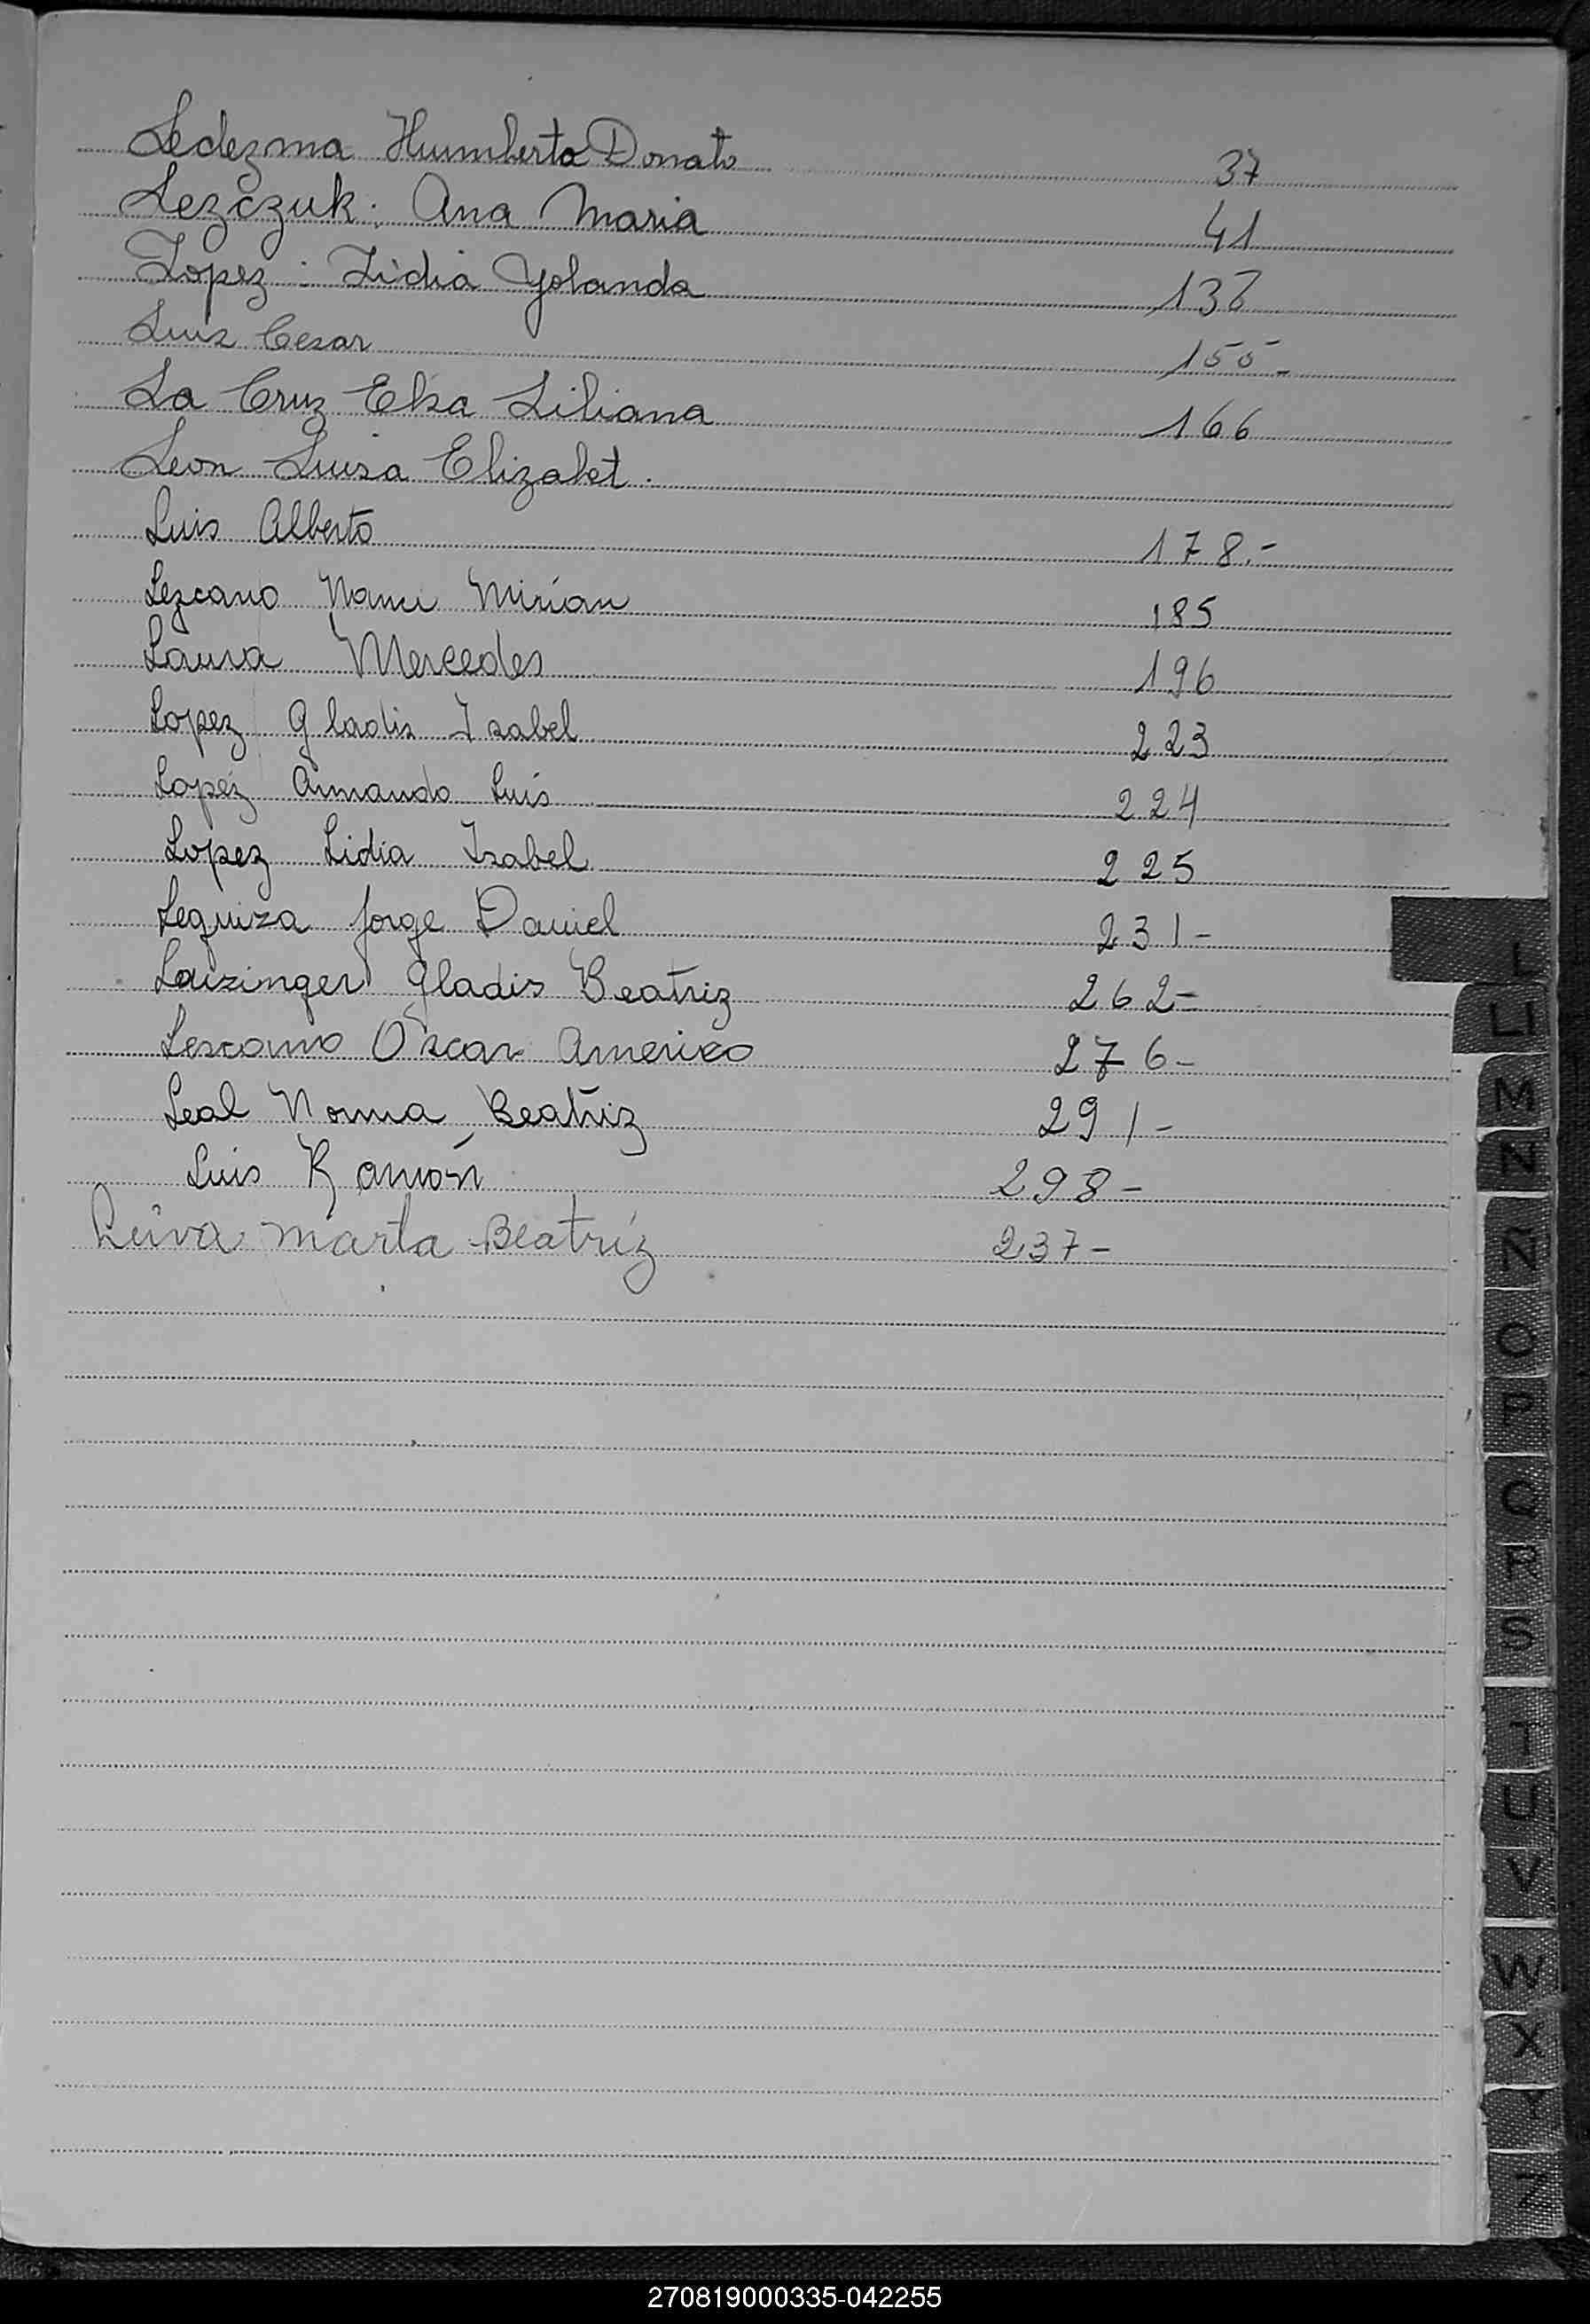 Ledezma Humberto Donato 37
Lezczuk. Ana Maria 41
Lopez: Lidia Yolanda 138
Luis Cesar 155-
La Cruz Elsa Liliana 166
Leon Luisa Elizabet.
Luis Alberto 178.-
Lezcano Mirian 185
Laura Mercedes 196
Lopez Gladis Isabel 223
Lopez Armando Luis 224
Lopez Lidia Isabel 225
Leguiza Jorge Daniel 231-
Gladis Beatriz 262-
Lescano Oscar Americo 276-
Leal Norma Beatriz 291-
Luis Ramón 298-
Leiva Marta Beatríz 237-
L
LI
M
N
Ñ
O
P
Q
R
S
T
U
V
W
X
Y
Z
270819000335-042255